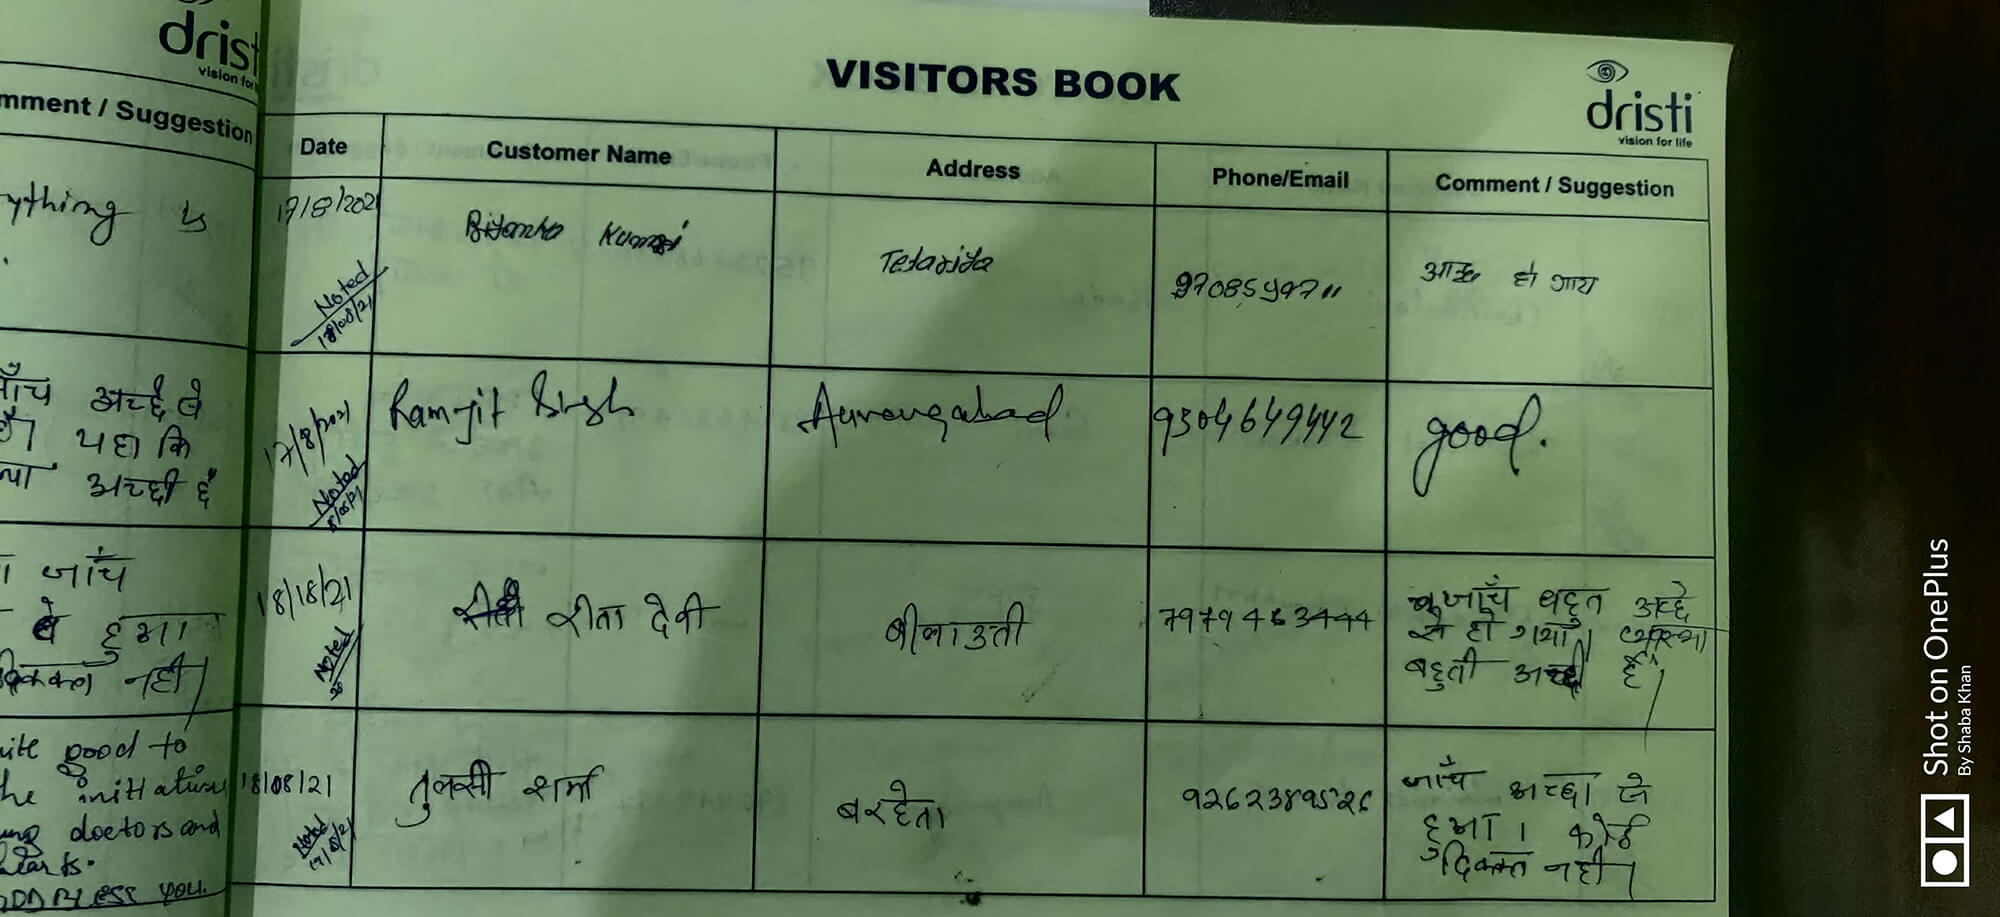 dristi
vision for
mment / Suggestion
ything is
जाँच अच्छे से
है। यहा कि
अच्छी है
जाँच
से हुआ।
दिक्कत नहीं।
good to
he initiative
doctors and
BLESS YOU.
VISITORS BOOK
dristi
vision for life
Date Customer Name Address Phone/Email Comment / Suggestion
17/8/2021 Kumari Tetariya
Noted
18/08/21
हो गाय
17/8/2021 Ramjit Singh Aurangabad 9304649442 good.
Noted
18/08/21
18/18/21 रीता देवी बीलाउती 7979463444 जाँच बहुत अच्छे
से हो गया। व्यवस्था
बहुती अच्छी है।
Noted
18/08/21 तुलसी शर्मा बरहेता 9262389526 जाँच अच्छा से
हुआ। कोई
दिक्कत नहीं।
Noted
Shot on OnePlus
By Shaba Khan